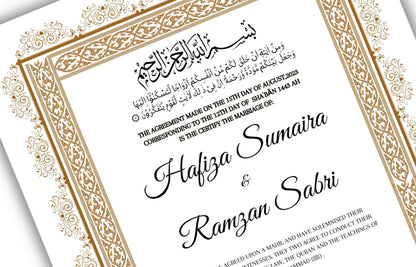 بِسْمِ اللَّهِ الرَّحْمَنِ الرَّحِيمِ
وَمِنْ آيَاتِهِ أَنْ خَلَقَ لَكُم مِّنْ أَنفُسِكُمْ أَزْوَاجًا لِّتَسْكُنُوا إِلَيْهَا
وَجَعَلَ بَيْنَكُم مَّوَدَّةً وَرَحْمَةً إِنَّ فِي ذَلِكَ لَآيَاتٍ لِّقَوْمٍ يَتَفَكَّرُونَ
THE AGREEMENT MADE ON THE 15TH DAY OF AUGUST,2023
CORRESPONDING TO THE 12TH DAY OF SHA'BĀN 1443 AH
IS THE CERTIFY THE MARRIAGE OF:
Hafiza Sumaira
&
Ramzan Sabri
AGREED UPON A MAHR, AND HAVE SOLEMNISED THEIR
WITNESSES. THEY TWO AGREE TO CONDUCT THEIR
LAW, THE QURAN AND THE TEACHINGS OF
(ﷺ).